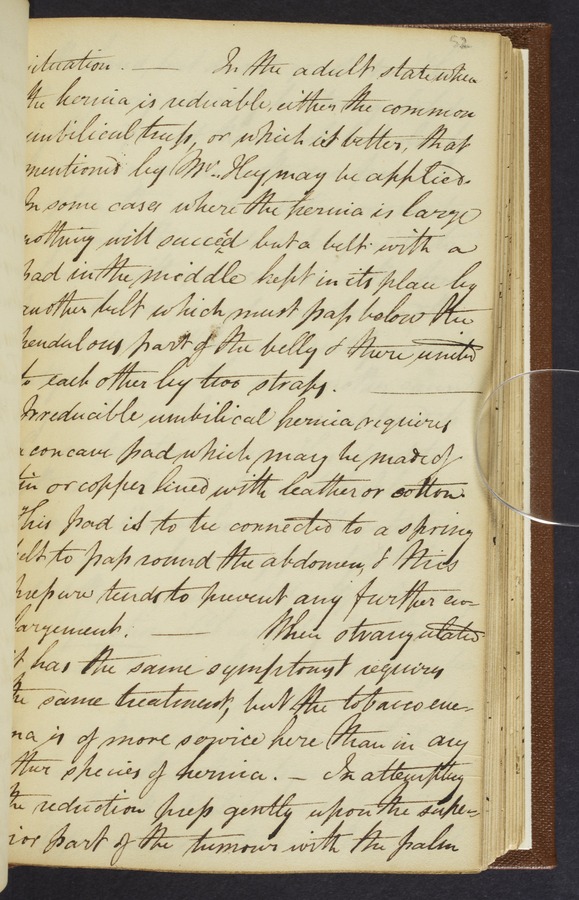 52
ituation. — In the adult state when
the hernia is reducable, either the common
umbilical truss, or which is better, that
mentioned by Mr. Hey may be applied.
In some cases where the hernia is large
nothing will succeed but a belt with a
pad in the middle kept in its place by
another belt which must pass below the
pendulous part of the belly & there united
to each other by two straps. —
Irreducible umbilical hernia requires
a concave pad which may be made of
tin or copper lined with leather or cotton
This pad is to be connected to a spring
elt to pass round the abdomen & this
pressure tends to prevent any further en-
largement. — When strangulated
it has the same symptoms & requires
the same treatment, but the tobacco ene-
ma is of more service here than in any
other species of hernia. — In attempting
the reduction press gently upon the supe-
rior part of the tumour with the palm